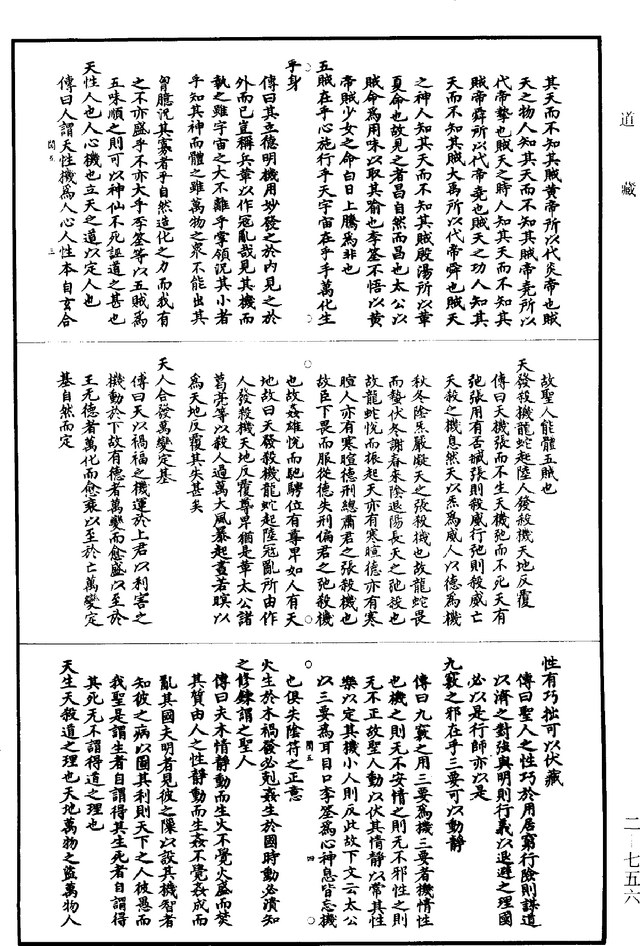 道藏
其天而不知其賊黃帝所以代炎帝也賊
天之物人知其天而不知其賊帝堯所以
代帝摯也賊天之時人知其天而不知其
賊帝舜所以代帝堯也賊天之功人知其
天而不知其賊大禹所以代帝舜也賊天
之神人知其天而不知其賊殷湯所以革
夏命也故見之者昌自然而昌也太公以
賊命為用味以取其喻也李筌不悟以黃
帝賊少女之命白日上騰為非也
五賊在乎心施行乎天宇宙在乎手萬化生
乎身
傳曰其立德明機用妙發之於內見之於
外而已豈稱兵革以作寇亂哉見其機而
執之雖宇宙之大不離乎掌領況其小者
乎知其神而體之雖萬物之衆不能出其
胷臆況其寡者乎自然造化之力而我有
之不亦盛乎不亦大乎李筌等以五賊為
五味順之則可以神仙不死誣道之甚也
天性人也人心機也立天之道以定人也
傳曰人謂天性機為人心人性本自玄合
故聖人能體五賊也
天發殺機龍蛇起陸人發殺機天地反覆
傳曰天機張而不生天機弛而不死天有
弛張用有否臧張則殺威行弛則殺威亡
天殺之機息然天以炁為威人以德為機
秋冬陰炁嚴凝天之張殺機也故龍蛇畏
而蟄伏冬謝春來陰退陽長天之弛殺也
故龍蛇恱而振起天亦有寒暄德亦有寒
暄人亦有寒暄德刑總肅君之張殺機也
故臣下畏而服從德失刑偏君之弛殺機
也故姦雄恱而馳騁位有尊卑如人有天
地故曰天發殺機龍蛇起陸寇亂所由作
人發殺機天地反覆尊卑猶是革太公諸
葛亮等以殺人過萬大風暴起晝若暝以
為天地反覆其失甚矣
天人合發萬變定基
傳曰天以禍福之機運於上君以利害之
機動於下故有德者萬變而愈盛以至於
王无德者萬化而愈衰以至於亡萬變定
基自然而定
性有巧拙可以伏藏
傳曰聖人之性巧於用居窮行險則謀道
以濟之對強與明則行義以退避之理國
必以是行師亦以是
九竅之邪在乎三要可以動靜
傳曰九竅之用三要為機三要者機情性
也機之則无不安情之則无不邪性之則
无不正故聖人動以伏其情靜以常其性
樂以定其機小人則反此故下文云太公
以三要為耳目口李筌為心神息皆忘機
也俱失陰符之正意
火生於木禍發必剋姦生於國時動必潰知
之修鍊謂之聖人
傳曰夫木情靜動而生火不覺火盛而焚
其質由人之性靜動而生姦不覺姦成而
亂其國夫明者見彼之隙以設其機智者
知彼之病以圖其利則天下之人彼愚而
我聖是謂生者自謂得其生死者自謂得
其死无不謂得道之理也
天生天殺道之理也天地萬物之盜萬物人
閏五 三
閏五 四
二—七五六